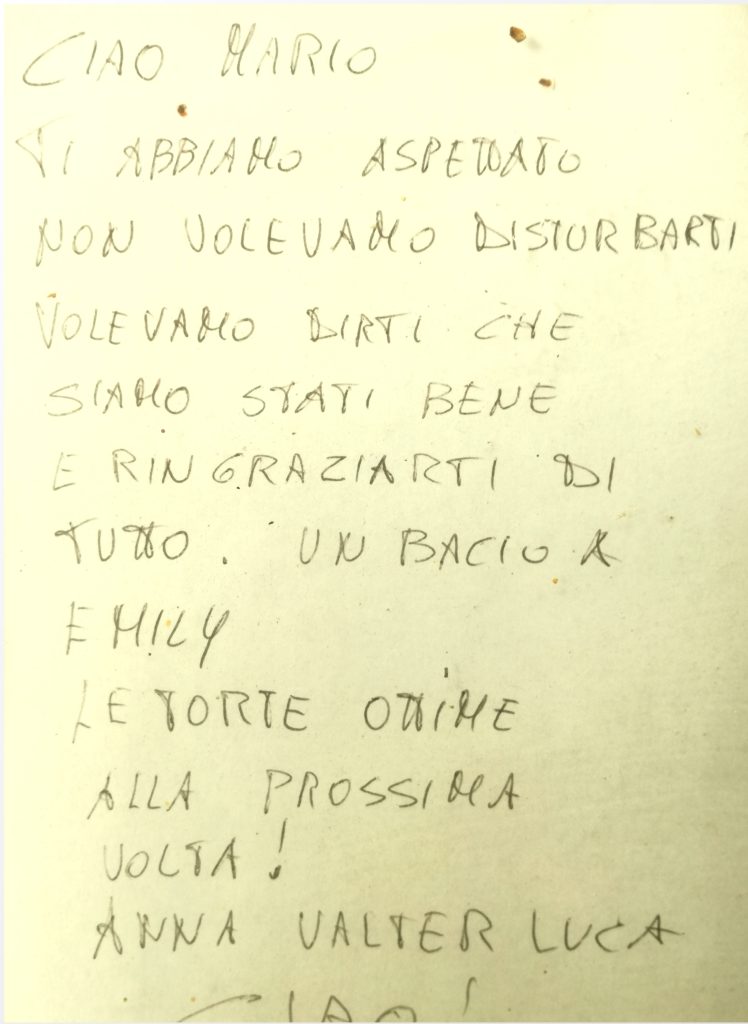 CIAO MARIO
TI ABBIAMO ASPETTATO
NON VOLEVAMO DISTURBARTI
VOLEVAMO DIRTI CHE
SIAMO STATI BENE
E RINGRAZIARTI DI
TUTTO. UN BACIO A
EMILY
LE TORTE OTTIME
ALLA PROSSIMA
VOLTA!
ANNA VALTER LUCA
CIAO!